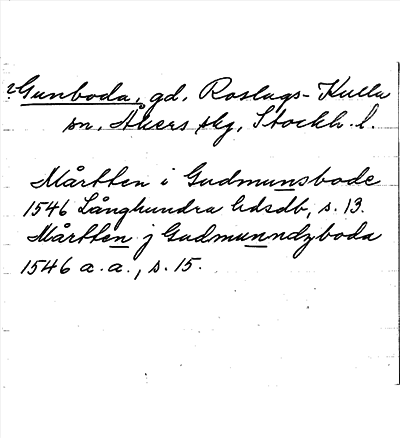 ? Gunboda, gd, Roslags-Kulla
sn, Åkers skg, Stockh. l.
Mårtten i Gudmunsbode
1546 Långhundra hdsdb, s. 13.
Mårtten j Gudmunndzboda
1546 a. a., s. 15.